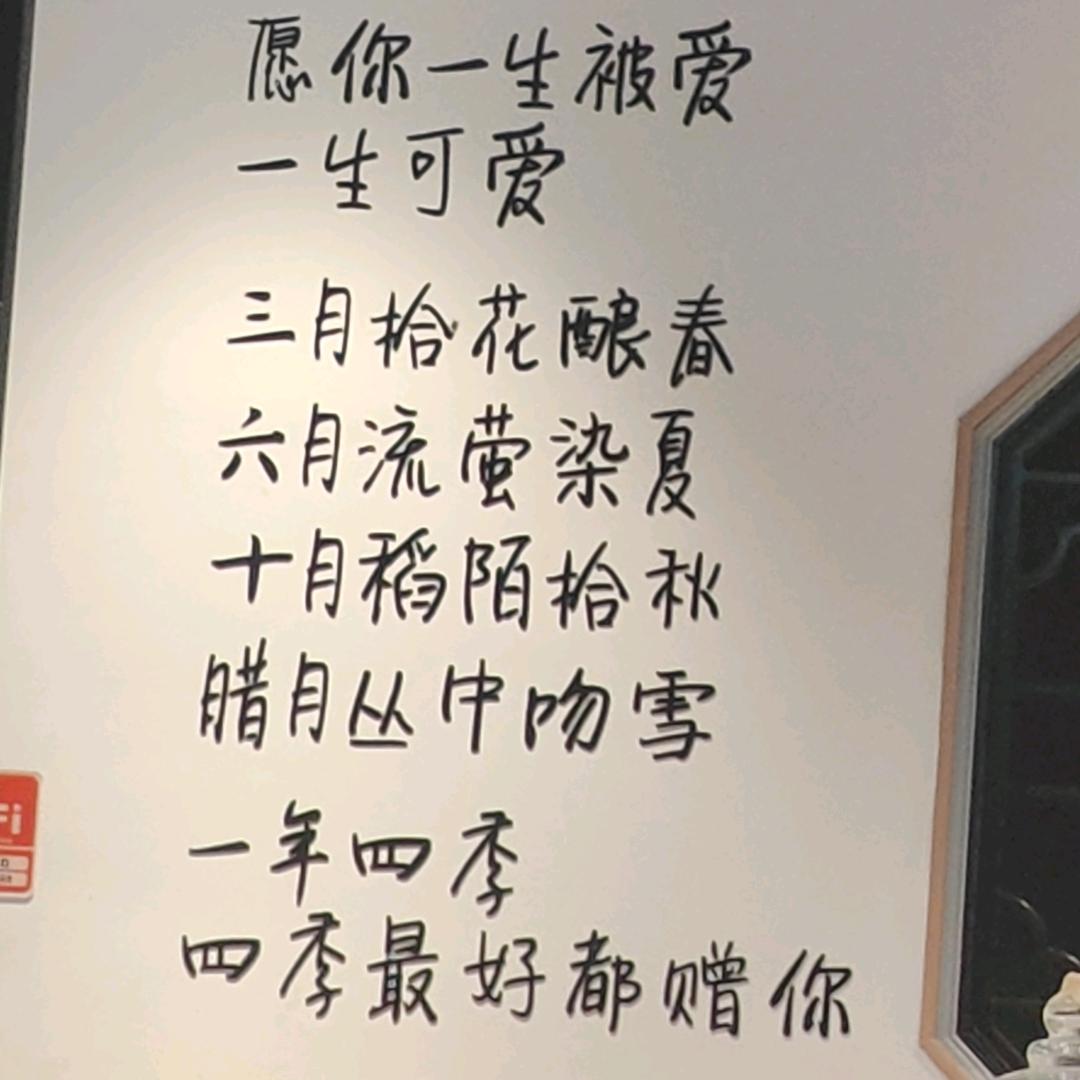 愿你一生被爱
一生可爱
三月拾花酿春
六月流萤染夏
十月稻陌拾秋
腊月丛中吻雪
一年四季
四季最好都赠你
Fi